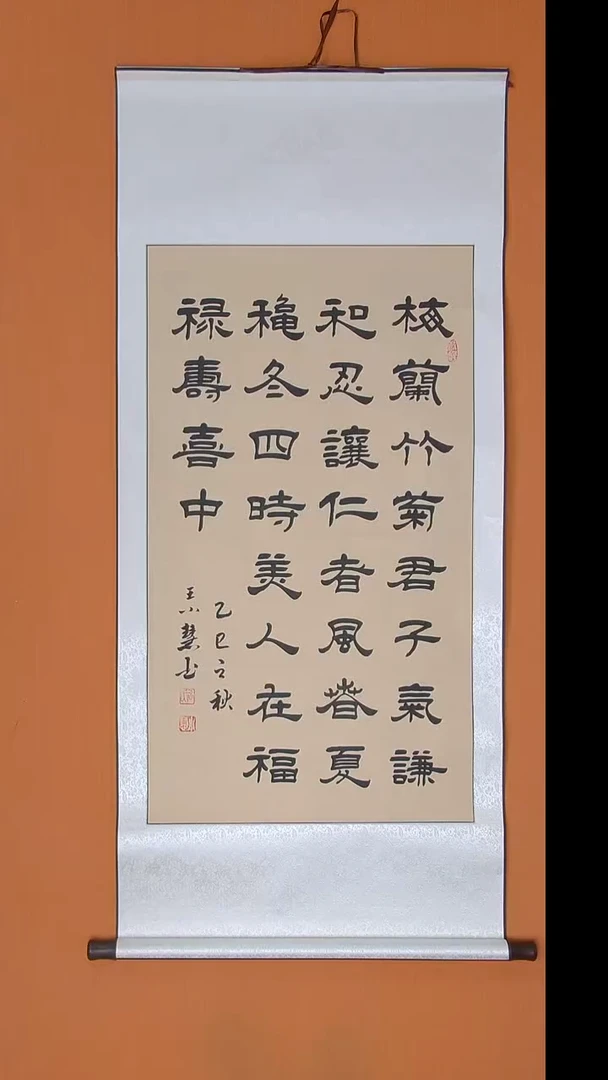 梅蘭竹菊君子氣謙
和忍讓仁者風萅夏
龝冬四時美人在福
禄壽喜中
乙巳立秋
王小慧书